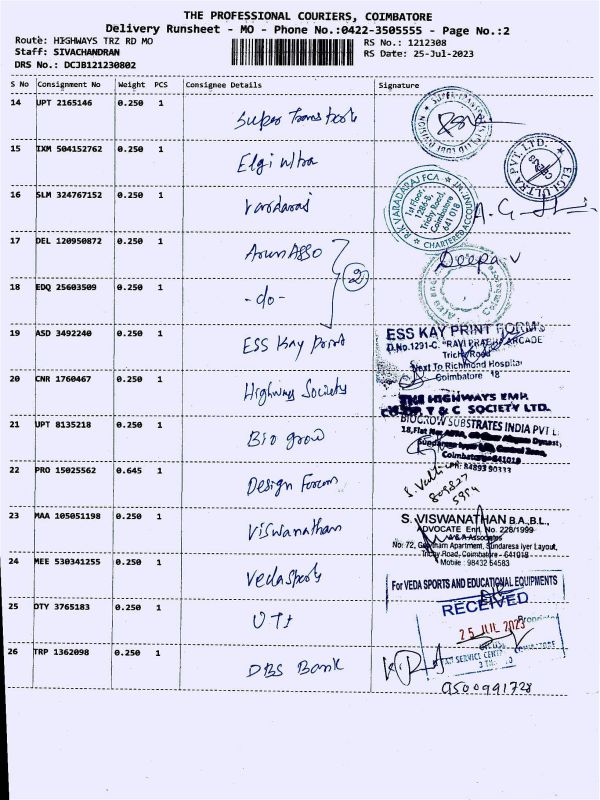 THE PROFESSIONAL COURIERS, COIMBATORE
Delivery Runsheet - MO - Phone No.:0422-3505555 - Page No.:2
Route: HIGHWAYS TRZ RD MO
RS No.: 1212308
Staff: SIVACHANDRAN
RS Date: 25-Jul-2023
DRS No.: DCJB121230802
S No Consignment No Weight PCS Consignee Details Signature
14 UPT 2165146 0.250 1 Super Transports
15 IXM 504152762 0.250 1 Elgi Ultra
ELGI ULTRA PVT. LTD.
16 SLM 324767152 0.250 1 Vardaraj
R.K VARADARAJ FCA
1st Floor,
1286-B,
Trichy Road,
Coimbatore
641 018
CHARTERED ACCOUNTANT
17 DEL 120950872 0.250 1 Arun Asso
Deepa V
2
18 EDQ 25603509 0.250 1 -do-
19 ASD 3492240 0.250 1 ESS Kay Print
ESS KAY PRINT FORMS
D.No.1291-C. "RAVI PRABHA ARCADE"
Trichy Road
Next To Richmond Hospital
Coimbatore 18
20 CNR 1760467 0.250 1 Highway Society
THE HIGHWAYS EMP.
CO-OP. T & C SOCIETY LTD.
21 UPT 8135218 0.250 1 Bio grow
BIOGROW SUBSTRATES INDIA PVT L
Coimbatore-641018
22 PRO 15025562 0.645 1 Design Forum
23 MAA 105051198 0.250 1 Viswanathan
S. VISWANATHAN B.A.,B.L.,
ADVOCATE Enrl. No. 228/1999
Associates
No: 72, Gowtham Apartment, Sundaresa Iyer Layout,
Trichy Road, Coimbatore - 641018
Mobile : 98432 64583
24 MEE 530341255 0.250 1 Veda Sports
For VEDA SPORTS AND EDUCATIONAL EQUIPMENTS
25 OTY 3765183 0.250 1 UTI
RECEIVED
25 JUL 2023
26 TRP 1362098 0.250 1 DBS Bank
9500991728